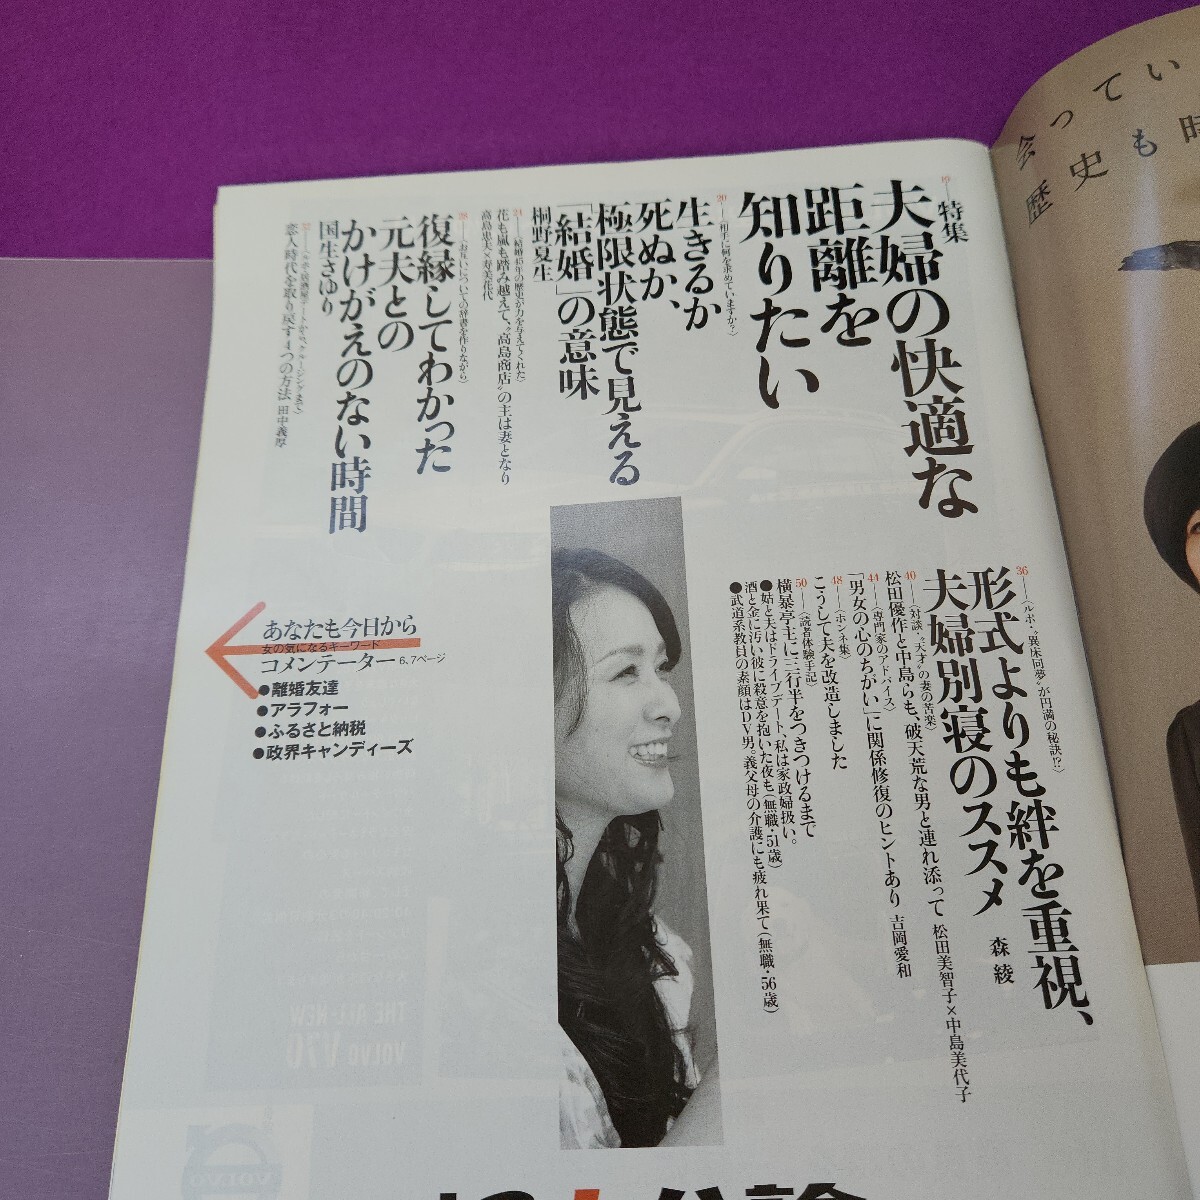 19
特集
夫婦の快適な
距離を
知りたい
20
〈相手に何を求めていますか?〉
生きるか
死ぬか、
極限状態で見える
「結婚」の意味
桐野夏生
24
〈結婚45年の歴史が力を与えてくれた〉
花も嵐も踏み越えて、“高島商店”の主は妻となり
高島忠夫×寿美花代
28
〈お互いについての辞書を作りながら〉
復縁してわかった
元夫との
かけがえのない時間
国生さゆり
32
恋人時代を取り戻す4つの方法 田中義厚
36
〈ルポ・“異床同夢”が円満の秘訣!?〉
形式よりも絆を重視、
夫婦別寝のススメ
森 綾
40
〈対談・“天才”の妻の苦楽〉
松田優作と中島らも、破天荒な男と連れ添って 松田美智子×中島美代子
44
〈専門家のアドバイス〉
「男女の心のちがい」に関係修復のヒントあり 吉岡愛和
48
〈ホンネ集〉
こうして夫を改造しました
50
〈読者体験手記〉
横暴亭主に三行半をつきつけるまで
●姑と夫はドライブデート、私は家政婦扱い。
酒と金に汚い彼に殺意を抱いた夜も(無職・51歳)
●武道系教員の素顔はDV男。義父母の介護にも疲れ果て(無職・56歳)
あなたも今日から
女の気になるキーワード
コメンテーター 6、7ページ
●離婚友達
●アラフォー
●ふるさと納税
●政界キャンディーズ
会ってい
歴史も時
THE ALL-NEW
VOLVO V70
VOLVO